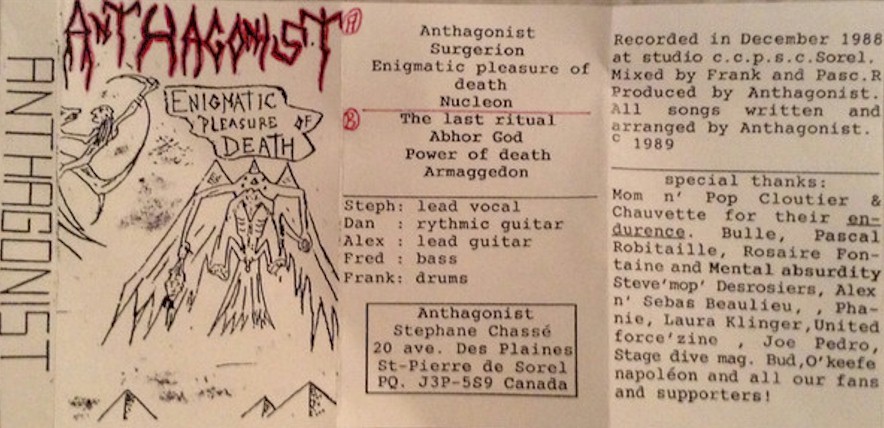 ANTHAGONIST
ANTHAGONIST
ENIGMATIC
PLEASURE OF
DEATH
A
Anthagonist
Surgerion
Enigmatic pleasure of
death
Nucleon
B
The last ritual
Abhor God
Power of death
Armaggedon
Steph: lead vocal
Dan : rythmic guitar
Alex : lead guitar
Fred : bass
Frank: drums
Anthagonist
Stephane Chassé
20 ave. Des Plaines
St-Pierre de Sorel
PQ. J3P-5S9 Canada
Recorded in December 1988
at studio c.c.p.s.c.Sorel.
Mixed by Frank and Pasc.R
Produced by Anthagonist.
All songs written and
arranged by Anthagonist.
c 1989
special thanks:
Mom n' Pop Cloutier &
Chauvette for their en-
durence. Bulle, Pascal
Robitaille, Rosaire Fon-
taine and Mental absurdity
Steve'mop' Desrosiers, Alex
n' Sebas Beaulieu, , Pha-
nie, Laura Klinger,United
force'zine , Joe Pedro,
Stage dive mag. Bud,O'keefe
napoléon and all our fans
and supporters!